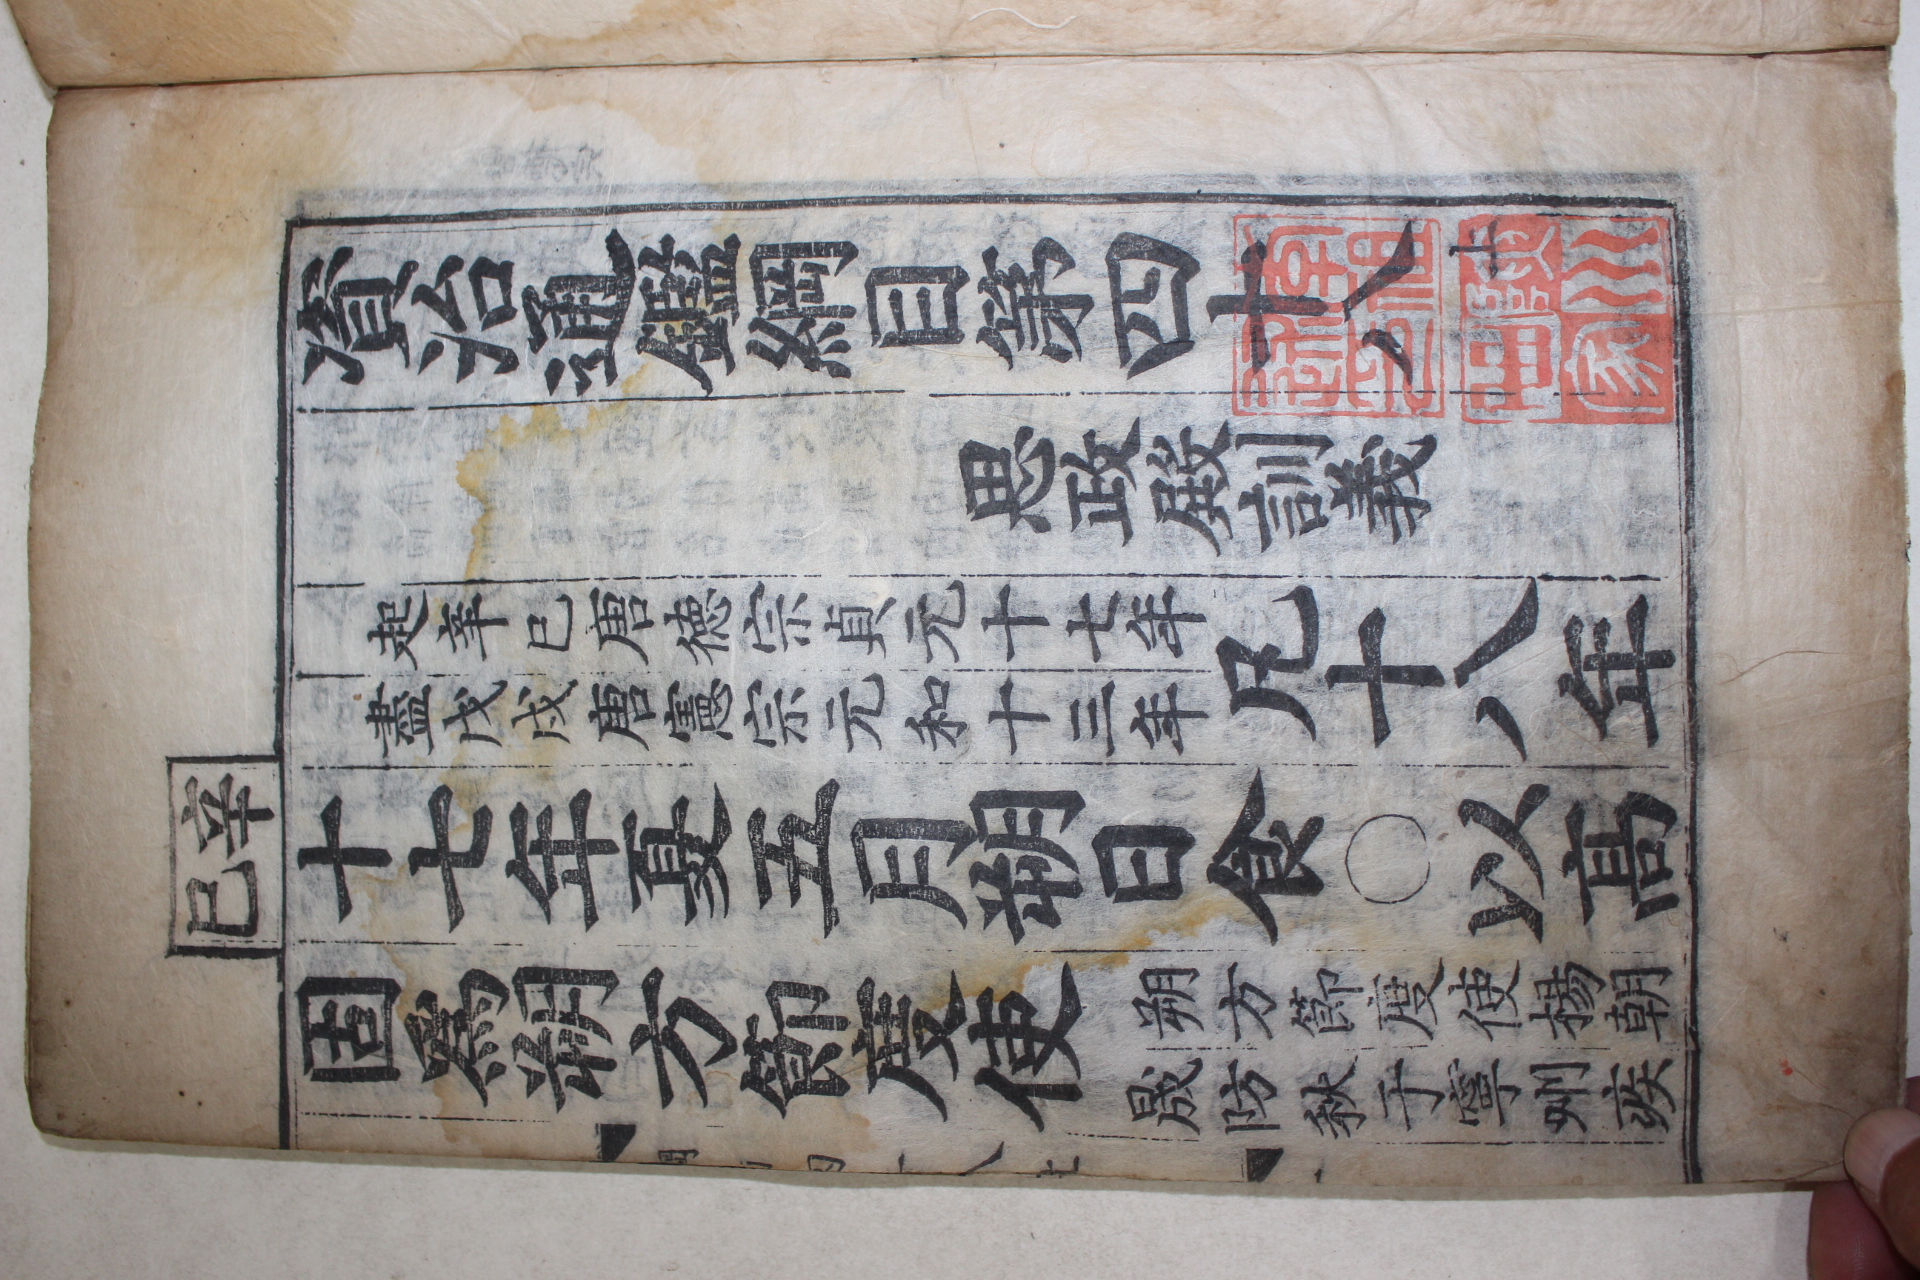 辛巳
資治通鑑綱目第四十八上
思政殿訓義
起辛巳唐德宗貞元十七年
盡戊戌唐憲宗元和十三年
凡十八年
十七年夏五月朔日食○以高
固爲朔方節度使
朔方節度使楊朝
晟防秋于寧州疾
陜川
世家